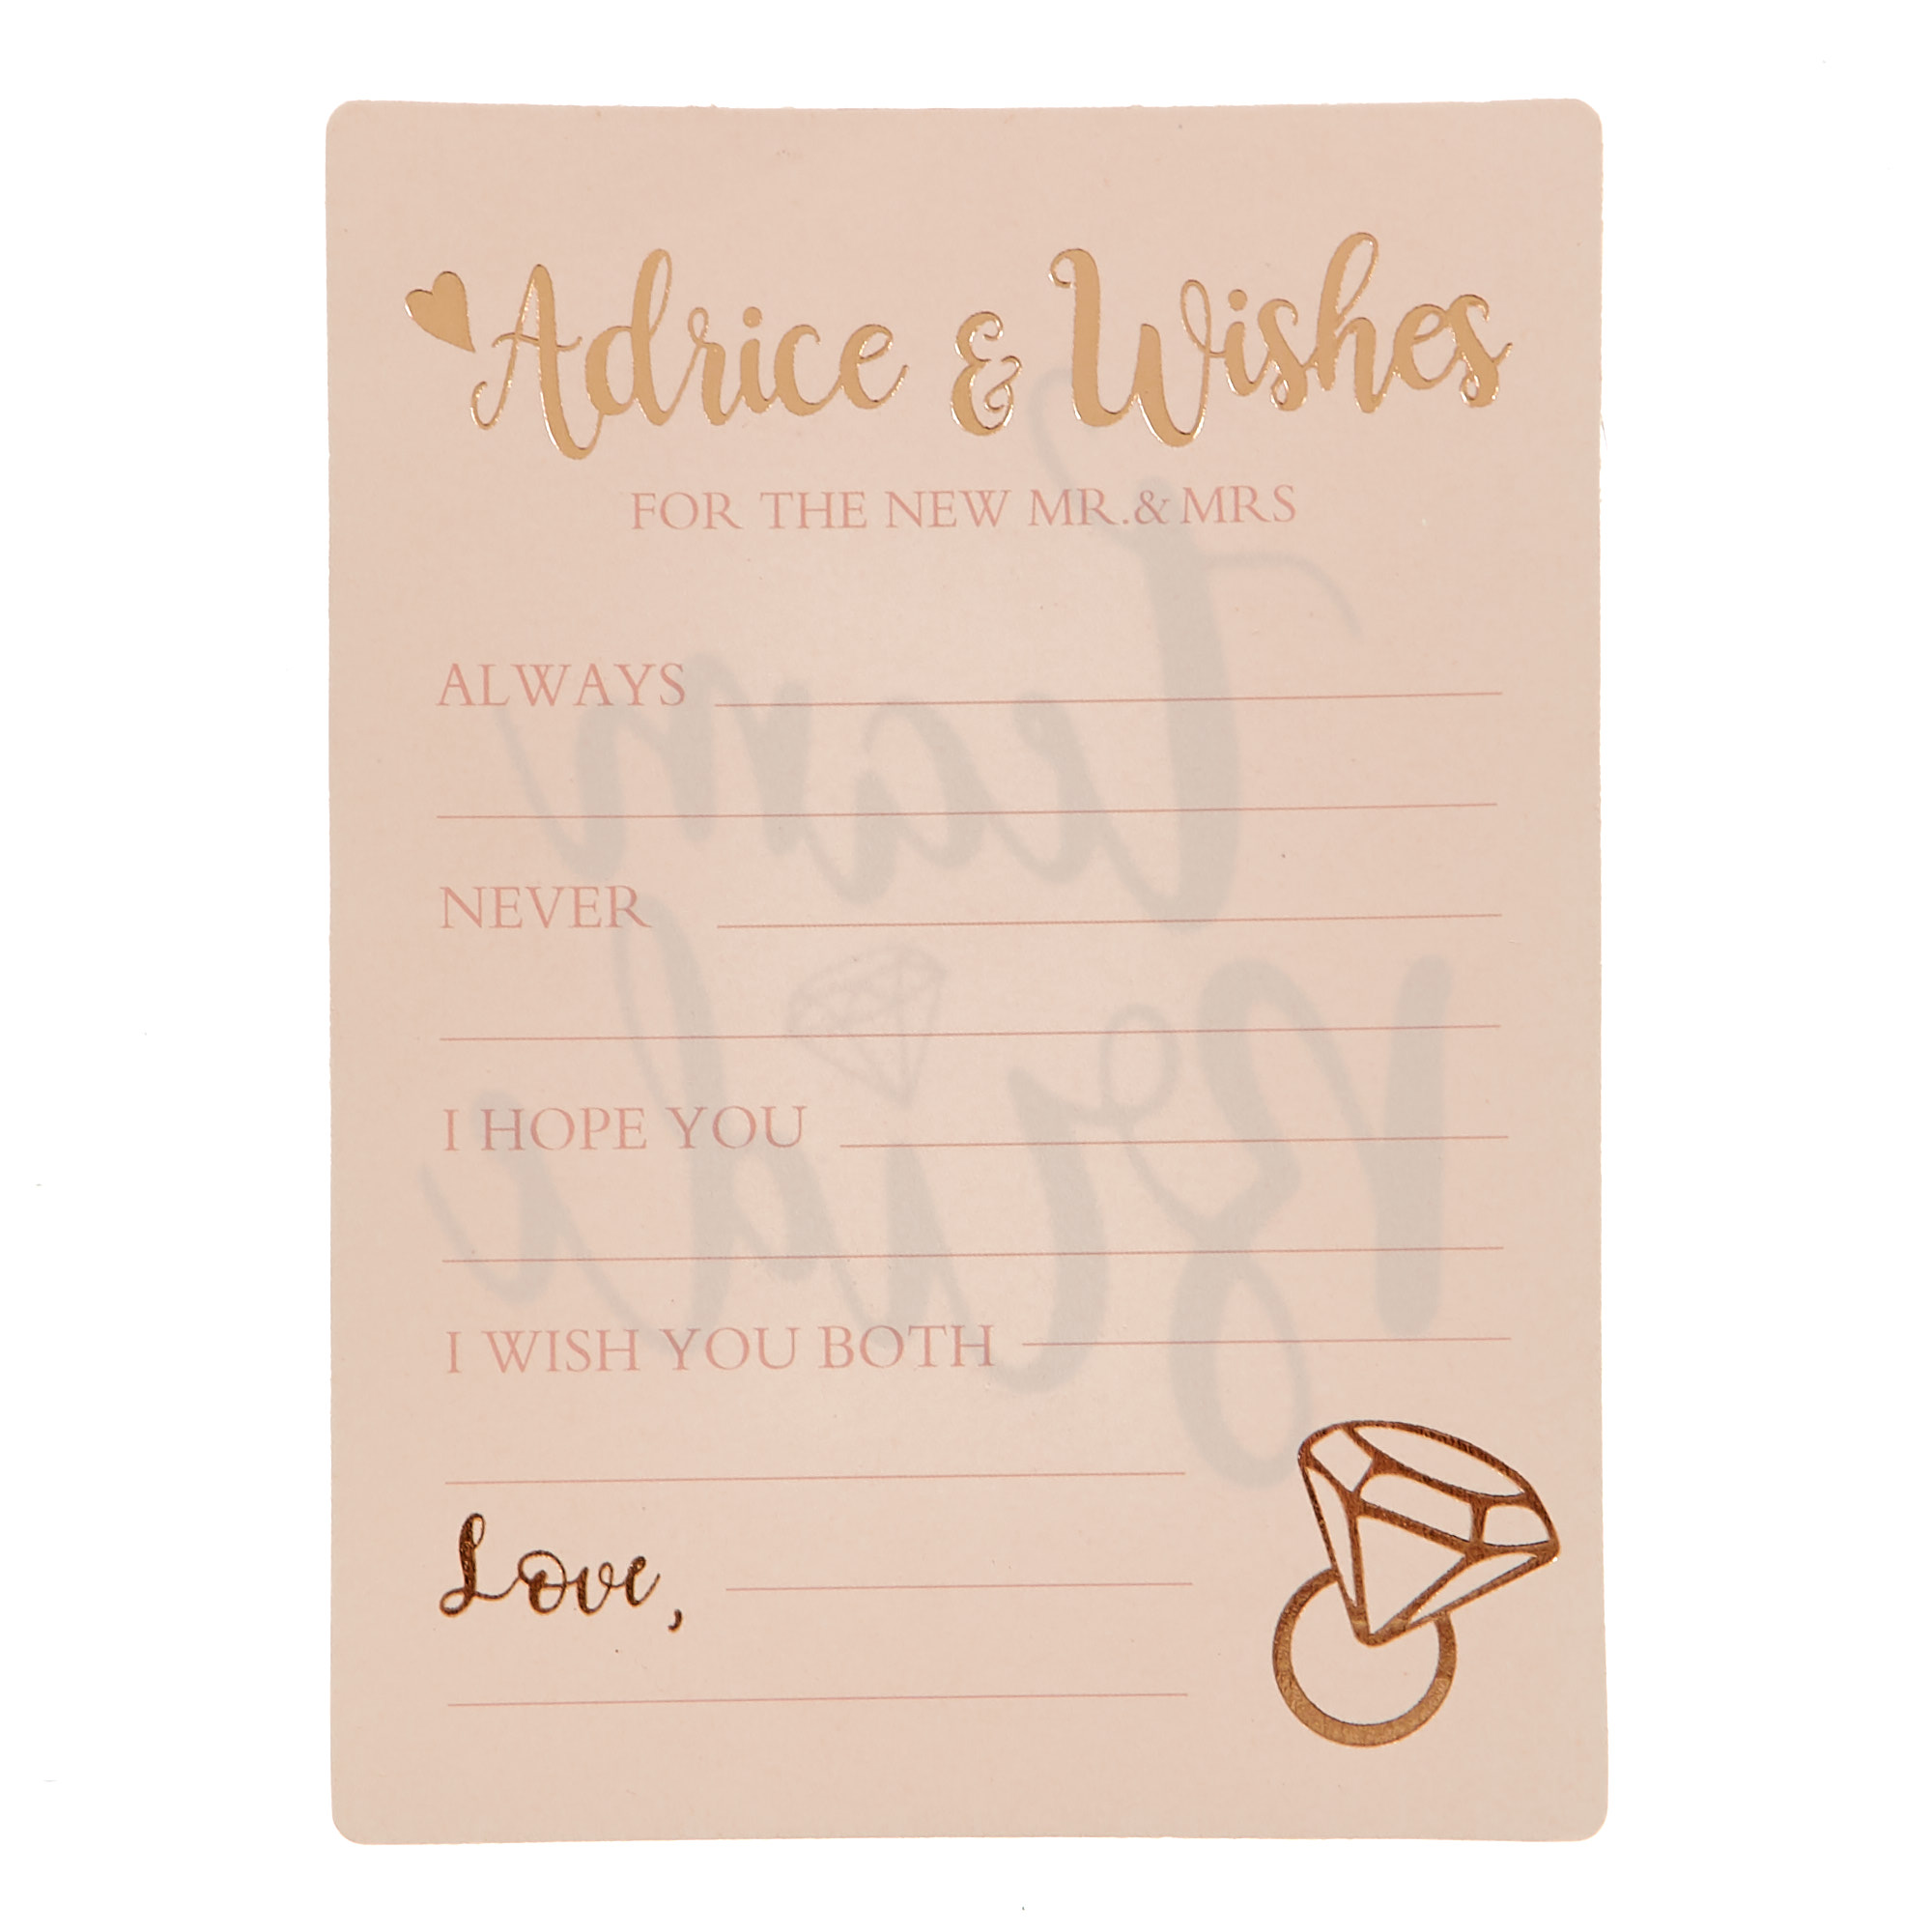 Advice & Wishes
FOR THE NEW MR.& MRS
ALWAYS
NEVER
I HOPE YOU
I WISH YOU BOTH
Love,
Team
Bride